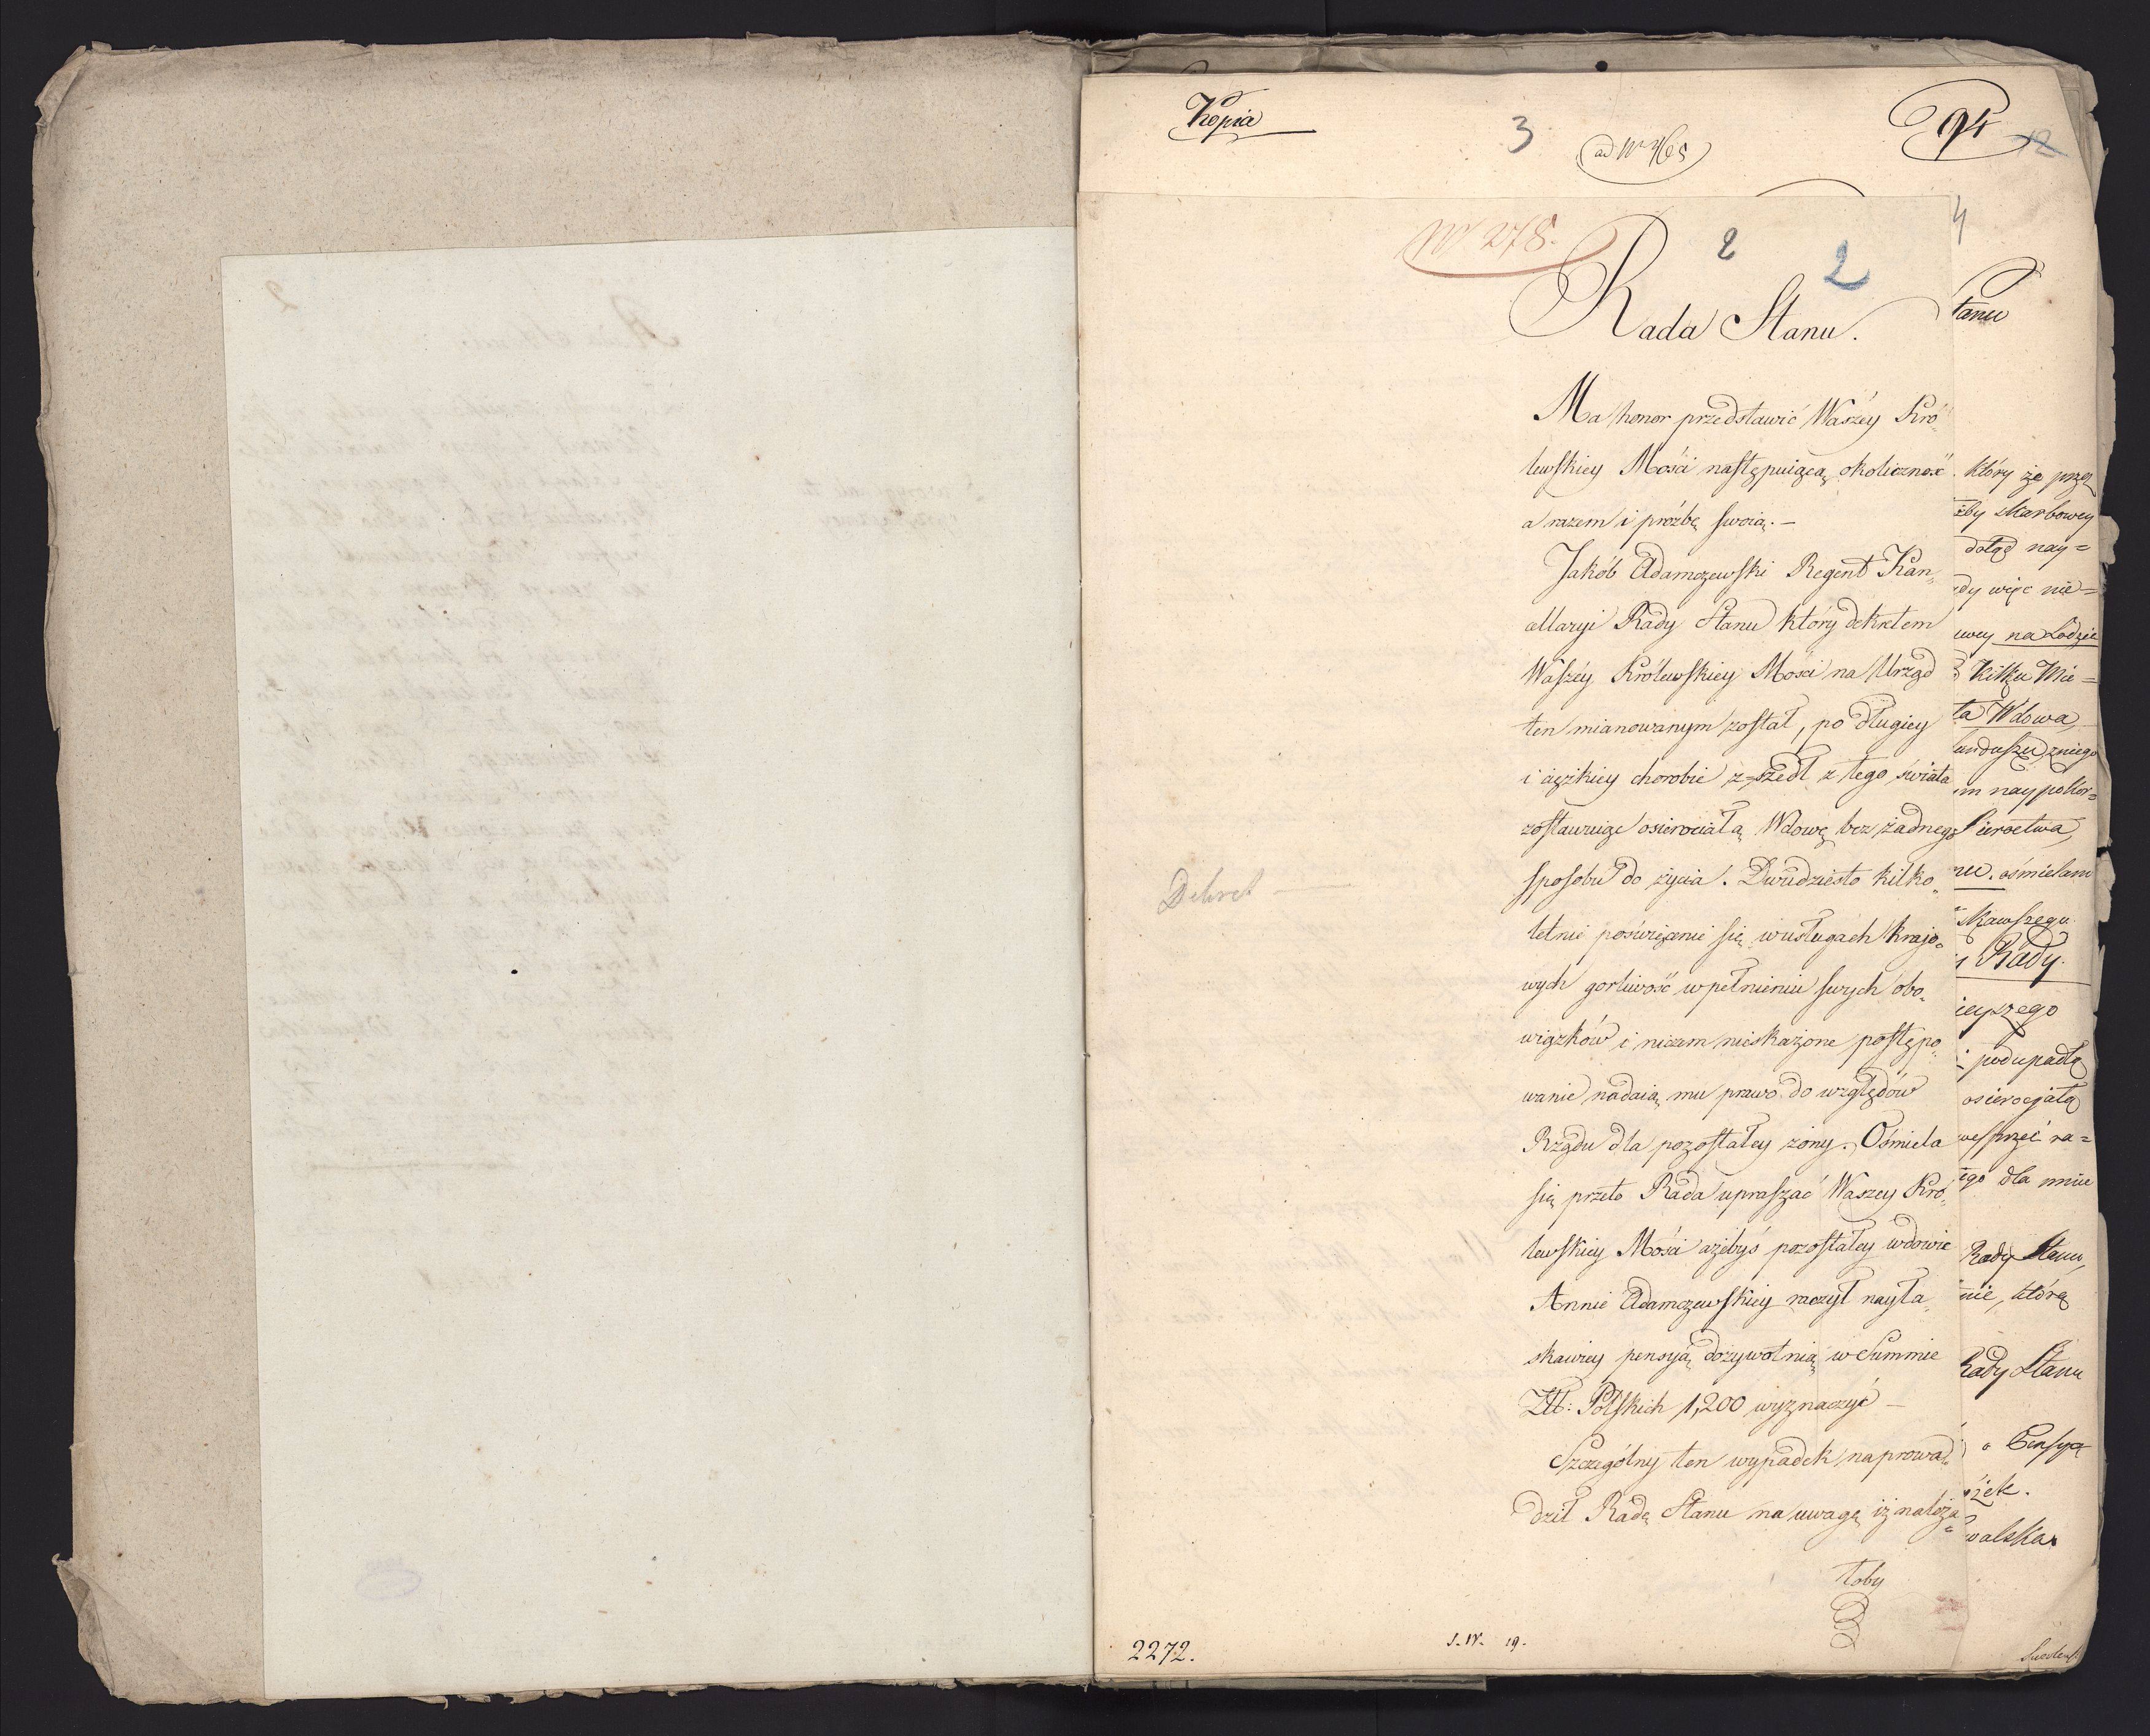 Kopia
3
ad Nr 465
94
12
4
Nr 278.
2
2
Rada Stanu.
Ma honor przedstawić Waszéy Kró„
lewskiey Mości następuiącą okoliczność
a razem i prożbę swoią. –
Jakób Adamczewski Regent Kan„
cllaryi Rady Stanu który dekretem
Waszéy Królewskiey Mości na Urząd
ten mianowanym został, po długiey
i ciężkiey chorobie z=szedł z tego świata
zostawuiąc osierociałą Wdowę bez żadnego
sposobu do życia. Dwudziesto kilko„
letnie poświęcenie się w usługach krajo„
wych gorliwość w pełnieniu swych obo„
wiązków i niczem nieskażone postępo„
wanie nadaią mu prawo do względów
Rządu dla pozostałey żony. Ośmiela
się przeto Rada upraszać Waszey Kró„
lewskiey Mości ażebyś pozostałey wdowie
Annie Adamczewskiey raczył nayła„
skawiey pensyą dożywotnią w Summie
Złł: Polskich 1,200 wyznaczyć –
Szczególny ten wypadek naprowa„
dził Radę Stanu na uwagę iż należa„
łoby
Dekret
2272.
J. W. 19.
tanu
który że przez
żby skarbowey
dotąd nay=
dy więc nie=
wey na Łodzie
kilku Mie=
ta Wdowa,
unduszu zniego
m naypokor=
sieroctwa,
nu. ośmielam
skawszego
Rady.
ieyszego
podupadłą
osierocjałą
wesprzeć ra=
ego dla mnie
Rady Stanu,
nie, którą
Rady Stanu
o Pensyą
żek.
walska